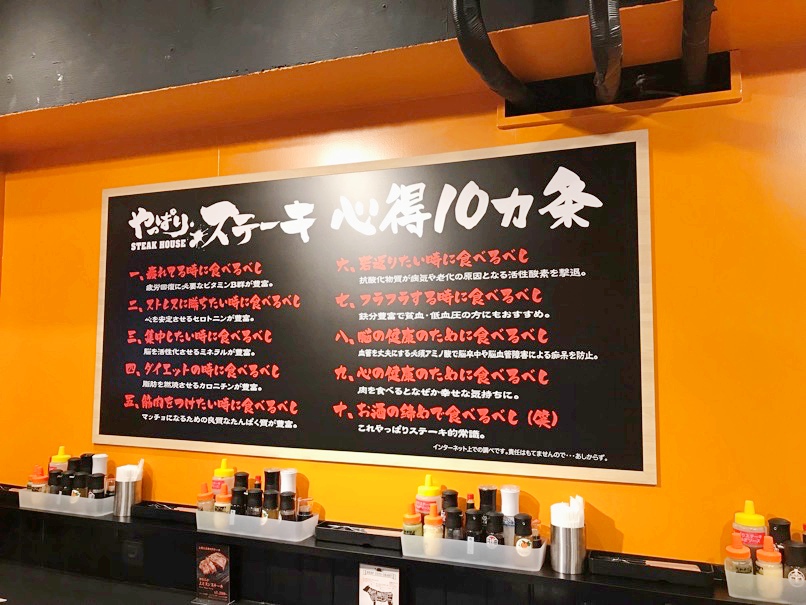 やっぱりステーキ 心得10カ条
STEAK HOUSE
一、疲れてる時に食べるべし
疲労回復に必要なビタミンB群が豊富。
二、ストレスに勝ちたい時に食べるべし
心を安定させるセロトニンが豊富。
三、集中したい時に食べるべし
脳を活性化させるミネラルが豊富。
四、ダイエットの時に食べるべし
脂肪を燃焼させるカロニチンが豊富。
五、筋肉をつけたい時に食べるべし
マッチョになるための良質なたんぱく質が豊富。
六、若返りたい時に食べるべし
抗酸化物質が病気や老化の原因となる活性酸素を撃退。
七、フラフラする時に食べるべし
鉄分豊富で貧血・低血圧の方にもおすすめ。
八、脳の健康のために食べるべし
血管を丈夫にする必須アミノ酸で脳卒中や脳血管障害による痴呆を防止。
九、心の健康のために食べるべし
肉を食べるとなぜか幸せな気持ちに。
十、お酒の締めで食べるべし（笑）
これやっぱりステーキ的常識。
インターネット上での調べです。責任はもてませんので・・・あしからず。